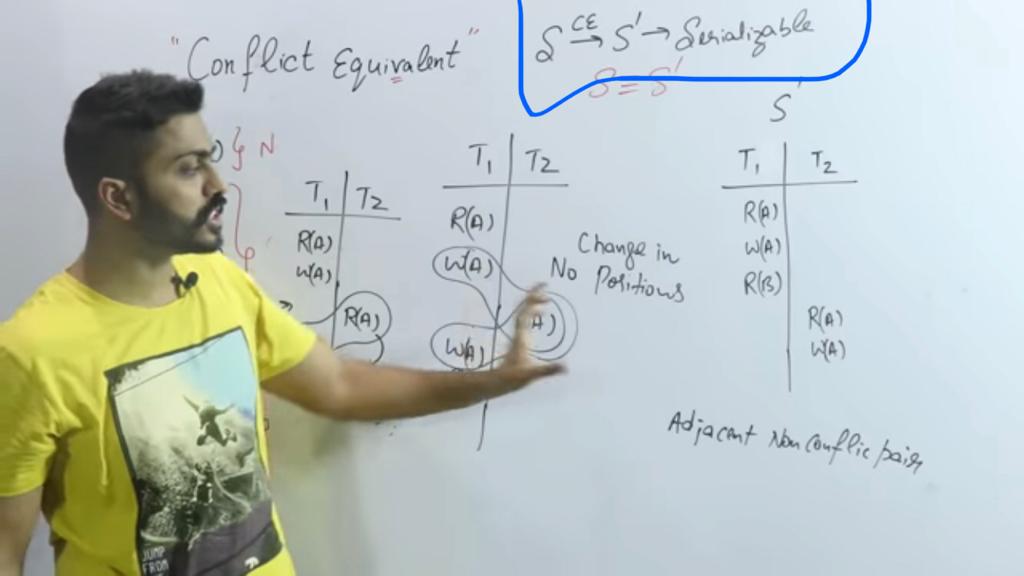 "Conflict Equivalent"
S CE→ S' → Serializable
S = S'
} N
T1 | T2
R(A)
W(A)
R(A)
T1 | T2
R(A)
W(A)
A)
W(A)
Change in
No Positions
S'
T1 | T2
R(A)
W(A)
R(B)
R(A)
W(A)
Adjacent Non conflic pairs
JUMP
FROM